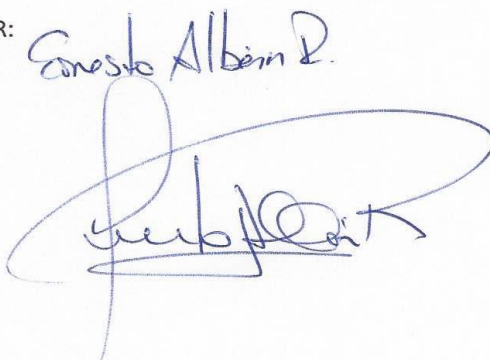 R:
Ernesto Albán R.